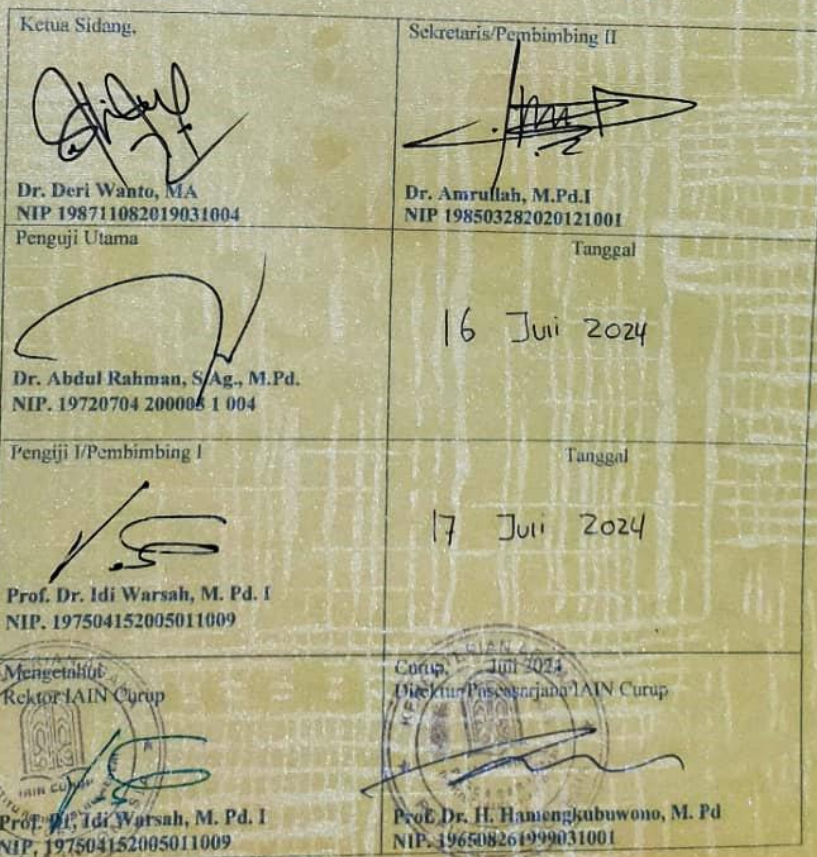 Ketua Sidang,
Dr. Deri Wanto, MA
NIP 198711082019031004
Sekretaris/Pembimbing II
Dr. Amrullah, M.Pd.I
NIP 198503282020121001
Penguji Utama
Dr. Abdul Rahman, S.Ag., M.Pd.
NIP. 19720704 200003 1 004
Tanggal
16 Juli 2024
Pengiji I/Pembimbing I
Prof. Dr. Idi Warsah, M. Pd. I
NIP. 197504152005011009
Tanggal
17 Juli 2024
Mengetahui
Rektor IAIN Curup
IAIN CURUP
Prof. Dr. Idi Warsah, M. Pd. I
NIP. 197504152005011009
Curup, Juli 2024
Direktur Pascasarjana IAIN Curup
Prof. Dr. H. Hamengkubuwono, M. Pd
NIP. 196508261999031001